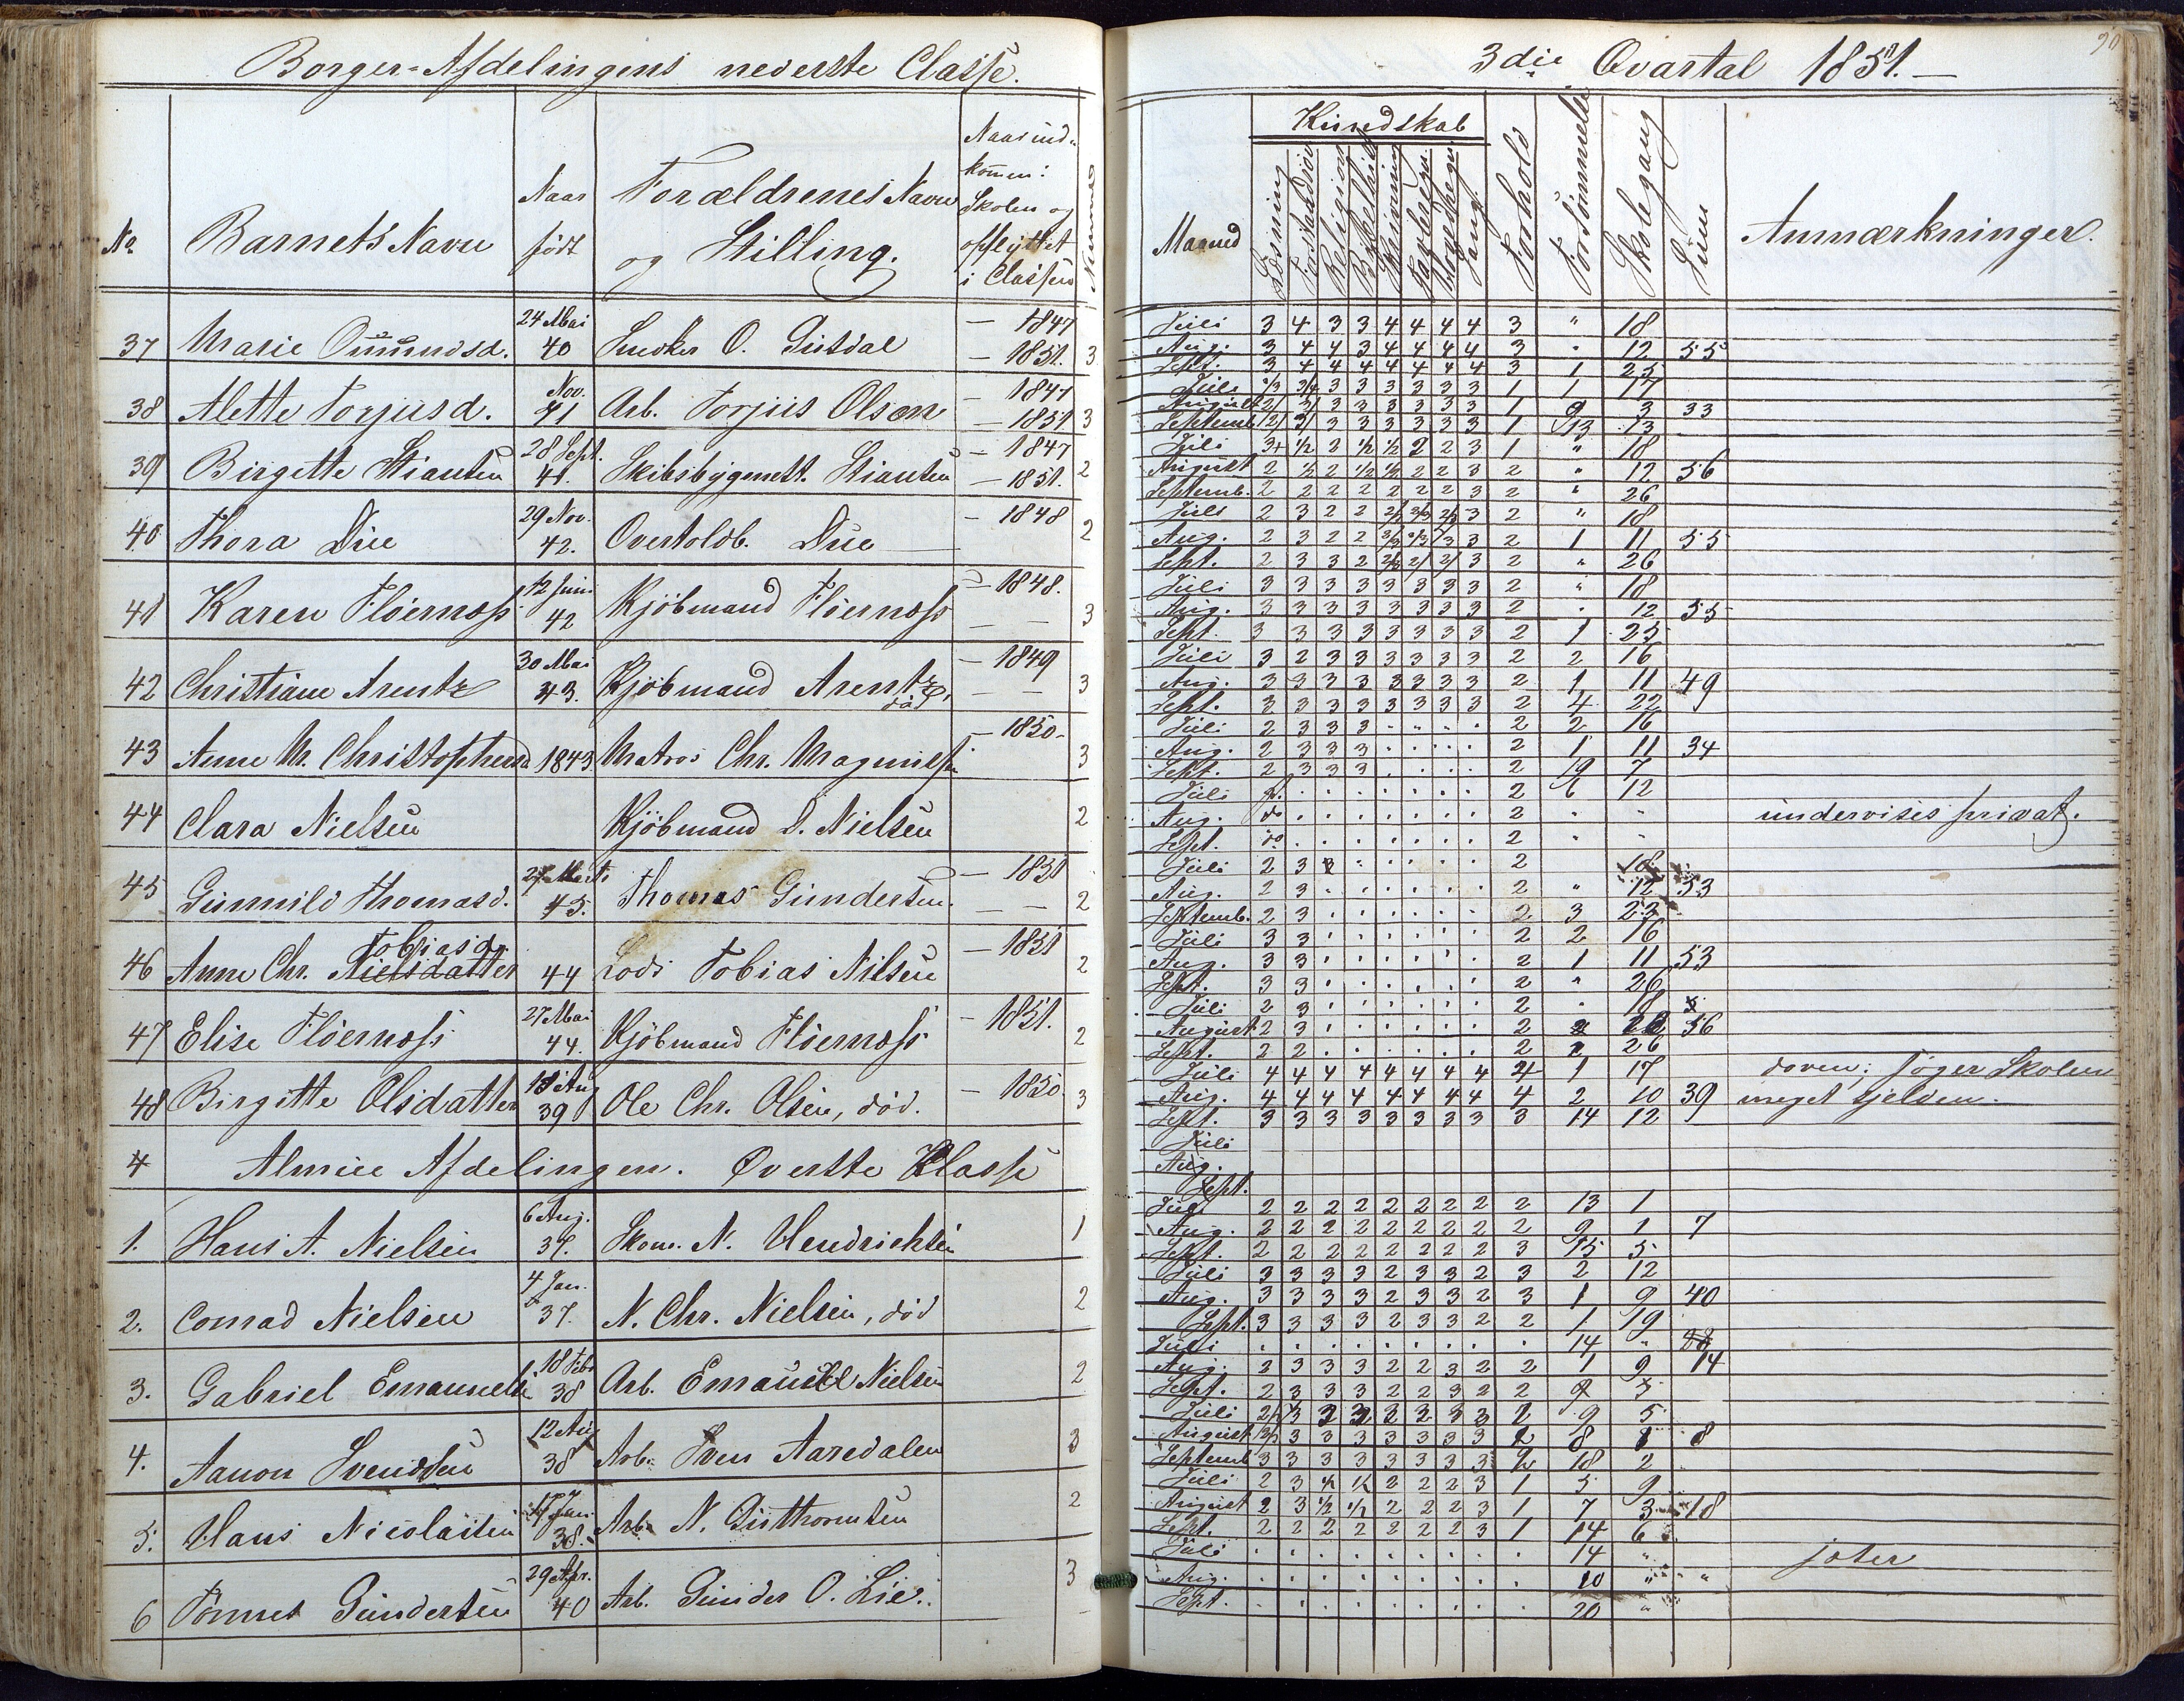 Borger-Afdelingens nederste Classe.
No. Barnets Navn Naar født Forældrenes Navn og Stilling. Naar indkommen i Skolen og opflyttet i Classen Nummer
24 Mai — 1847
37 Marie Ommundsd. 40 Snedker O. Gusdal — 1851. 3
Nov. — 1847
38 Alette Torjusd. 41 Arb. Torjus Olsen — 1851 3
28 Sept. — 1847
39 Birgitte Stiansen 41. Skibsbygmest. Stiansen — 1851. 2
29 Nov. — 1848
40 Thora Due 42. Overtoldb. Due 2
12 Juni — 1848.
41 Karen Fløernæss 42 Kjöbmand Fløernæss — — 3
30 Mai — 1849
42 Christiane Arentz 43. Kjöbmand Arentz, död — — 3
— 1850-
43 Anne M. Christophersd 1843. Matros Chr. Magnussen 3
44 Clara Nielsen Kjöbmand S. Nielsen 2
27 Marts — 1851
45 Gunnild Thomasd. 45. Thomas Gundersen. — — 2
Tobiasdr — 1851
46 Anne Chr. Nielsdatter 44 Lods Tobias Nilsen 2
27 Mai — 1851.
47 Elise Fløernæss 44. Kjöbmand Fløernæss 2
18 Aug — 1850.
48 Birgitte Olsdatter 39 Ole Chr. Olsen, död. 3
4 Almue Afdelingen. Øverste Klasse
6 Aug.
1. Hans A. Nielsen 37. Skom. N. Hendrichsen 1
4 Jan.
2. Conrad Nielsen 37. N. Chr. Nielsen, död 2
18 Febr
3. Gabriel Emanuelse 38 Arb. Emanuel Nielsen 2
12 Aug
4. Aanon Svendsen 38 Arb. Sven Aaredalen 3
17 Jan.
5. Hans Nicolaisen 38. Arb. N. Guthormsen 2
29 Apr.
6 Tønnes Gundersen 40 Arb. Gunder O. Lie. 3
3die Qvartal 1851. —
90
Kundskab
Maaned Læsning Religion Skrivning Tavleregn. Hovedregn. Sang Forhold Forsømmelse Skolegang Sum Anmærkninger.
Juli 3 4 3 3 4 4 4 4 3 " 18
Aug. 3 4 4 3 4 4 4 4 3 " 12 55
Sept. 3 4 4 4 4 4 4 4 3 1 25
Juli 2/3 3/4 3 3 3 3 3 3 1 1 17
August 2/ 3/ 3 3 3 3 3 3 1 9 3 33
Septemb. 2/ 3/ 3 3 3 3 3 3 1 13 13
Juli 3+ 1/2 2 1/2 1/2 2 2 3 1 " 18
August 2 1/2 2 1/2 1/2 2 2 3 2 " 12 56
Septemb. 2 2 2 2 2 2 2 3 2 " 26
Juli 2 3 2 2 2/3 2/3 2/3 3 2 " 18
Aug. 2 3 2 2 2/3 2/3 3 3 2 1 11 55
Sept. 2 3 3 2 2/3 2/ 2/ 3 2 " 26
Juli 3 3 3 3 3 3 3 3 2 " 18
Aug. 3 3 3 3 3 3 3 3 2 " 12 55
Sept. 3 3 3 3 3 3 3 3 2 1 25
Juli 3 2 3 3 3 3 3 3 2 2 16
Aug. 3 3 3 3 3 3 3 3 2 1 11 49
Sept. 3 3 3 3 3 3 3 3 2 4 22
Juli 2 3 3 3 . . . . 2 2 16
Aug. 2 3 3 3 . . . . 2 1 11 34
Sept. 2 3 3 3 . . . . 2 19 7
Juli . . . . . . . 2 6 12
Aug. do . . . . . . . 2 " " undervises privat.
Sept. do . . . . . . . 2 " "
Juli 2 3 . . . . . 2 18
Aug. 2 3 . . . . . . 2 " 12 53
Septemb. 2 3 . . . . . . 2 3 23
Juli 3 3 . . . . . . 2 2 16
Aug. 3 3 . . . . . . 2 1 11 53
Sept. 3 3 . . . . . . 2 " 26
Juli 2 3 . . . . . . 2 " 18
August 2 3 . . . . . . 2 12 56
Sept. 2 2 . . . . . . 2 26
Juli 4 4 4 4 4 4 4 4 4 1 17 doven; søger Skolen
Aug. 4 4 4 4 4 4 4 4 4 2 10 39 meget sjelden.
Sept. 3 3 3 3 3 3 3 3 3 14 12
Juli
Aug.
Sept.
Juli 2 2 2 2 2 2 2 2 2 13 1
Aug. 2 2 2 2 2 2 2 2 2 9 1 7
Sept. 2 2 2 2 2 2 2 2 3 15 5
Juli 3 3 3 3 2 3 3 2 3 2 12
Aug. 3 3 3 3 2 3 3 2 3 1 9 40
Sept. 3 3 3 3 2 3 3 2 2 1 19
Juli . . . . . . . . . 14 "
Aug. 2 3 3 3 2 2 3 2 2 1 9 14
Sept. 2 3 3 3 2 2 3 2 2 5
Juli 3 3 3 9 5
August 3 3 3 3 3 3 3 2 8 1 8
Septemb 3 3 3 3 3 3 3 3 2 18 2
Juli 2 3 1/2 1/2 2 2 2 3 1 5 9
August 2 3 1/2 1/2 2 2 2 3 1 7 3 18
Sept. 2 2 2 2 2 2 2 3 1 14 6
Juli . . . . . . . . . 14 " joter
Aug. . . . . . . . . . 10 " "
Sept. . . . . . . . . . 20 "